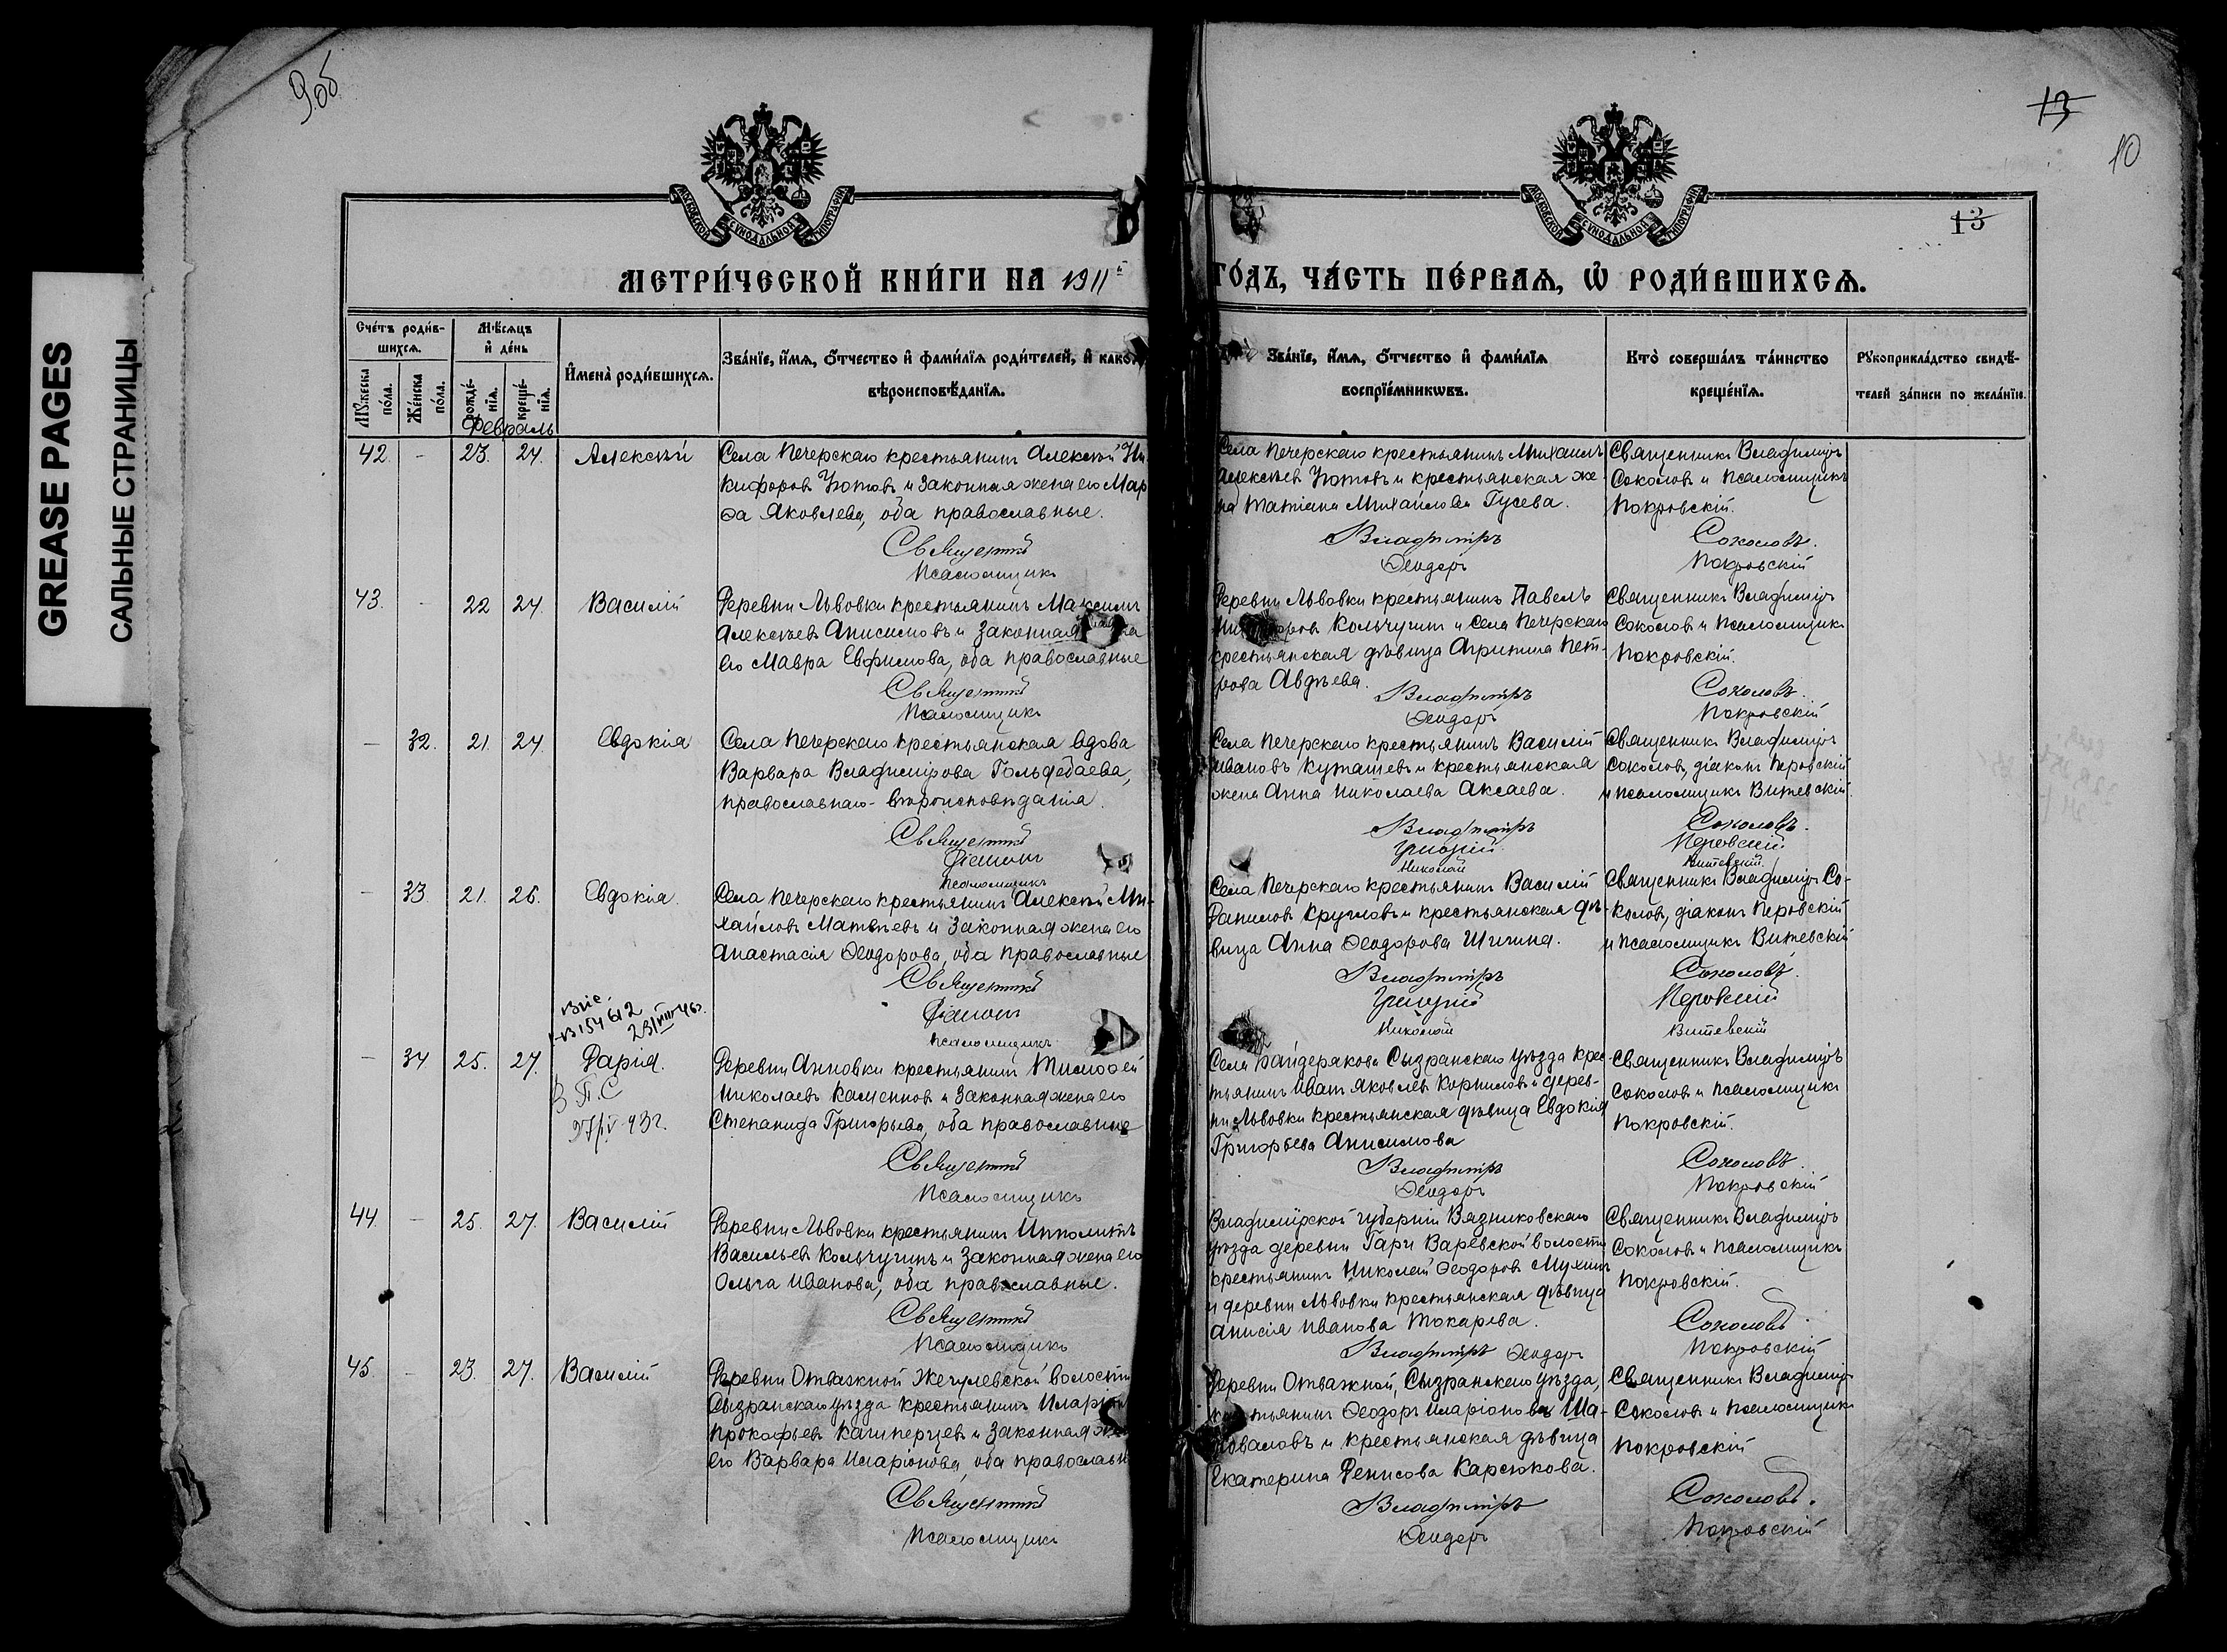 9об
13
10
13
GREASE PAGES
САЛЬНЫЕ СТРАНИЦЫ
МОСКОВСКОЙ СѴНОДАЛЬНОЙ ТИПОГРАФІИ
МОСКОВСКОЙ СѴНОДАЛЬНОЙ ТИПОГРАФІИ
МЕТРИ́ЧЕСКОЙ КНИ́ГИ НА 1911й
ГО́ДЪ, ЧА́СТЬ ПЕ́РВАѦ, Ѽ РОДИ́ВШИХСѦ.
Сче́тъ роди́в-
шихсѧ.
Мꙋ́жеска по́ла.
Же́нска по́ла.
Мѣ́сѧцъ
и҆ де́нь
рожде́-
нїѧ.
креще́-
нїѧ.
Февраль
И҆мена̀ роди́вшихсѧ.
Зва́нїе, и҆́мѧ, ѻ҆́тчество и҆ фами́лїѧ роди́телей, и҆ како́й
вѣроисповѣ́данїѧ.
Зва́нїе, и҆́мѧ, ѻ҆́тчество и҆ фами́лїѧ
воспрїе́мникѡвъ.
Кто̀ соверша́лъ та́инство
креще́нїѧ.
Рꙋкоприкла́дство свидѣ́-
телей за́писи по жела́нїю.
42. - 23. 24. Алексѣй
Села Печерскаго крестьянинъ Алексѣй Ни-
кифоровъ Уютовъ и законная жена его Мар-
ѳа Яковлева, оба православные.
Священникъ
Псаломщикъ
Села Печерскаго крестьянинъ Михаилъ
Алексѣевъ Уютовъ и крестьянская же-
на Татіана Михайлова Гусева.
Владиміръ
Ѳеодоръ
Священникъ Владиміръ
Соколовъ и псаломщикъ
Покровскій.
Соколовъ.
Покровскій
43. - 22 24. Василій
Деревни Львовки крестьянинъ Максимъ
Алексѣевъ Анисимовъ и законная жена
его Мавра Евфимова, оба православные
Священникъ
Псаломщикъ
Деревни Львовки крестьянинъ Павелъ
Кольчугинъ и села Печерскаго
крестьянская дѣвица Агрипина Пет-
рова Авдѣева.
Владиміръ
Ѳеодоръ
Священникъ Владиміръ
Соколовъ и псаломщикъ
Покровскій.
Соколовъ.
Покровскій
- 32. 21. 24. Евдокія
Села Печерскаго крестьянская вдова
Варвара Владимірова Гольдебаева,
православнаго вѣроисповѣданія.
Священникъ
Діаконъ
Псаломщикъ
Села Печерскаго крестьянинъ Василій
Ивановъ Куташевъ и крестьянская
жена Анна Николаева Аксаева.
Владиміръ
Григорій
Николай
Священникъ Владиміръ
Соколовъ, діаконъ Перовскій
и псаломщикъ Витевскій.
Соколовъ.
Перовскій
Витевскій.
- 33 21. 26. Евдокія.
Села Печерскаго крестьянинъ Алексѣй Ми-
хайловъ Матвѣевъ и законная жена его
Анастасія Ѳеодорова, оба православные
Священникъ
Діаконъ
Псаломщикъ
Села Печерскаго крестьянинъ Василій
Даниловъ Кругловъ и крестьянская дѣ-
вица Анна Ѳеодорова Шигина.
Владиміръ
Григорій
Николай
Священникъ Владиміръ Со-
коловъ, діаконъ Перовскій
и псаломщикъ Витевскій
Соколовъ.
Перовскій
Витевскій
- 34 25. 27. Дарія.
Деревни Анновки крестьянинъ Тимоѳей
Николаевъ Каменновъ и законная жена его
Степанида Григорьева, оба православные
Священникъ
Псаломщикъ
Села Байдерякова Сызранскаго уѣзда крес-
тьянинъ Иванъ Яковлевъ Корниловъ и дерев-
ни Львовки крестьянская дѣвица Евдокія
Григорьева Анисимова
Владиміръ
Ѳеодоръ
Священникъ Владиміръ
Соколовъ и псаломщикъ
Покровскій.
Соколовъ.
Покровскій
44. - 25. 27. Василій
Деревни Львовки крестьянинъ Ипполитъ
Васильевъ Кольчугинъ и законная жена его
Ольга Иванова, оба православные.
Священникъ
Псаломщикъ
Владимірской губерніи Вязниковскаго
уѣзда деревни Гари Варевской волости
крестьянинъ Николай Ѳеодоровъ Мухинъ
и деревни Львовки крестьянская дѣвица
Анисія Иванова Токарева.
Владиміръ Ѳеодоръ
Священникъ Владиміръ
Соколовъ и псаломщикъ
Покровскій.
Соколовъ.
Покровскій
45. - 23. 27. Василій
Деревни Отважной Жегулевской волости
Сызранскаго уѣзда крестьянинъ Иларіонъ
Прокофьевъ Кашперцевъ и законная жена
его Варвара Иларіонова, оба православн
Священникъ
Псаломщикъ
Деревни Отважной, Сызранскаго уѣзда,
крестьянинъ Ѳеодоръ Иларіоновъ Ша-
поваловъ и крестьянская дѣвица
Екатерина Денисова Карсюкова.
Владиміръ
Ѳеодоръ
Священникъ Владиміръ
Соколовъ и псаломщикъ
Покровскій
Соколовъ.
Покровскій